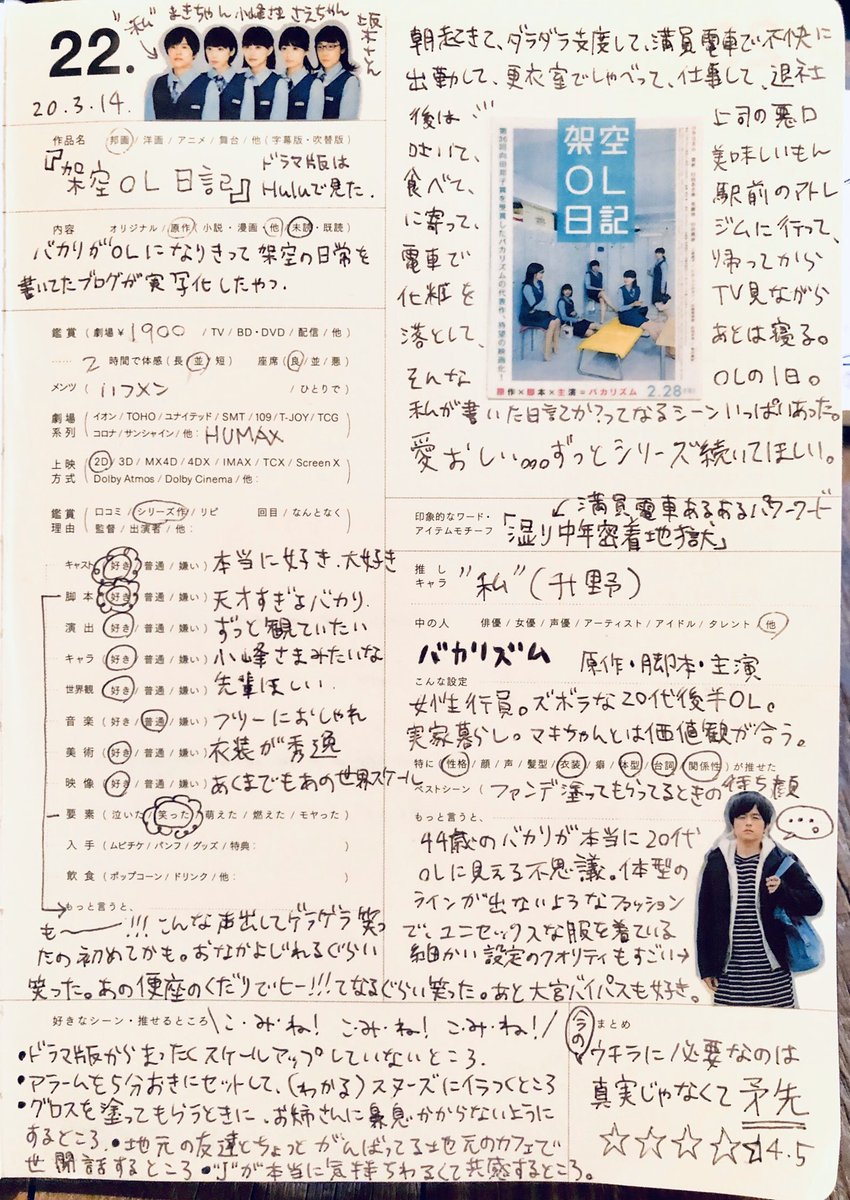 22.
"私"
まきちゃん
小峰さま
さえちゃん
坂本さん
20.3.14.
作品名 邦画 / 洋画 / アニメ / 舞台 / 他 (字幕版・吹替版)
『架空OL日記』
ドラマ版は
Huluで見た.
内容 オリジナル / 原作 / 小説・漫画 / 他 / 未読・既読)
バカリがOLになりきって架空の日常を
書いてたブログが実写化したやつ.
鑑賞 ( 劇場 ¥ 1900 / TV / BD・DVD / 配信 / 他 )
2 時間で体感 ( 長 / 並 / 短 ) 座席 ( 良 / 並 / 悪 )
メンツ ( いつメン / ひとりで )
劇場系列 ( イオン / TOHO / ユナイテッド / SMT / 109 / T-JOY / TCG
コロナ / サンシャイン / 他 : HUMAX )
上映方式 ( 2D / 3D / MX4D / 4DX / IMAX / TCX / Screen X
Dolby Atmos / Dolby Cinema / 他 : )
鑑賞理由 ( 口コミ / シリーズ作 / リピ 回目 / なんとなく
監督 / 出演者 / 他 : )
キャスト ( 好き / 普通 / 嫌い ) 本当に好き.大好き
脚本 ( 好き / 普通 / 嫌い ) 天才すぎよバカリ.
演出 ( 好き / 普通 / 嫌い ) ずっと観ていたい
キャラ ( 好き / 普通 / 嫌い ) 小峰さまみたいな
世界観 ( 好き / 普通 / 嫌い ) 先輩ほしい.
音楽 ( 好き / 普通 / 嫌い ) フツーにおしゃれ
美術 ( 好き / 普通 / 嫌い ) 衣装が秀逸
映像 ( 好き / 普通 / 嫌い ) あくまでもあの世界スケール
要素 ( 泣いた / 笑った / 萌えた / 燃えた / モヤった )
入手 ( ムビチケ / パンフ / グッズ / 特典 : )
飲食 ( ポップコーン / ドリンク / 他 : )
もっと言うと、
も〜!!! こんな声出してゲラゲラ笑っ
たの初めてかも。おなかよじれるぐらい
笑った。あの便座のくだりでヒー!!!てなるぐらい笑った。あと大宮バイパスも好き。
朝起きて、ダラダラ支度して、満員電車で不快に
出勤して、更衣室でしゃべって、仕事して、退社
後は 上司の悪口
吐いて、 美味しいもん
食べて、 駅前のアトレ
に寄って、 ジムに行って、
電車で 帰ってから
化粧を TV見ながら
落として、 あとは寝る。
そんな OLの1日。
架空
OL
日記
第36回向田邦子賞を受賞したバカリズムの代表作、待望の映画化!
原作×脚本×主演=バカリズム
2.28
私が書いた日記か?ってなるシーンいっぱいあった。
愛おしい。。。ずっとシリーズ続いてほしい。
印象的なワード・
アイテムモチーフ
満員電車あるあるパワーワード
「湿り中年密着地獄」
推し
キャラ
"私"(升野)
中の人 俳優 / 女優 / 声優 / アーティスト / アイドル / タレント / 他
バカリズム 原作・脚本・主演
こんな設定
女性行員。ズボラな20代後半OL。
実家暮らし。マキちゃんとは価値観が合う。
特に ( 性格 / 顔 / 声 / 髪型 / 衣装 / 癖 / 体型 / 台詞 / 関係性 ) が推せた
ベストシーン ( ファンデ塗ってもらってるときの待ち顔
もっと言うと、
44歳のバカリが本当に20代
OLに見える不思議。体型の
ラインが出ないようなファッション
で、ユニセックスな服を着ている
細かい設定のクオリティもすごい→
好きなシーン・推せるところ
\こ・み・ね! こ・み・ね! こ・み・ね!/
•ドラマ版からまったくスケールアップしていないところ.
•アラームを5分おきにセットして、(わかる)スヌーズにイラつくところ
•グロスを塗ってもらうときに、お姉さんに鼻息かからないように
するところ.•地元の友達とちょっとがんばってる地元のカフェで
世間話するところ•"J"が本当に気持ちわるくて共感するところ。
まとめ
今の
ウチラに必要なのは
真実じゃなくて矛先
☆☆☆☆☆ 4.5